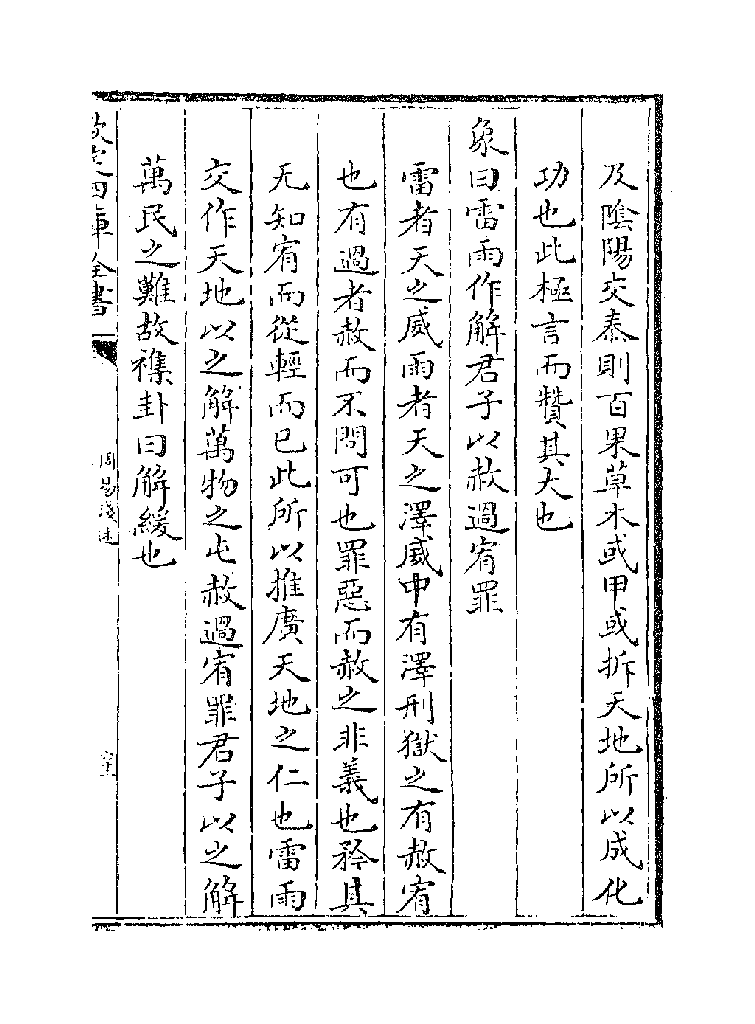 及隂陽交泰則百果草木或甲或拆天地所以成化
功也此極言而贊其大也
象曰雷雨作解君子以赦過宥罪
雷者天之威雨者天之澤威中有澤刑獄之有赦宥
也有過者赦而不問可也罪惡而赦之非義也矜其
无知宥而從輕而已此所以推廣天地之仁也雷雨
交作天地以之解萬物之屯赦過宥罪君子以之解
萬民之難故襍卦曰解緩也
欽定四庫全書
周易淺述